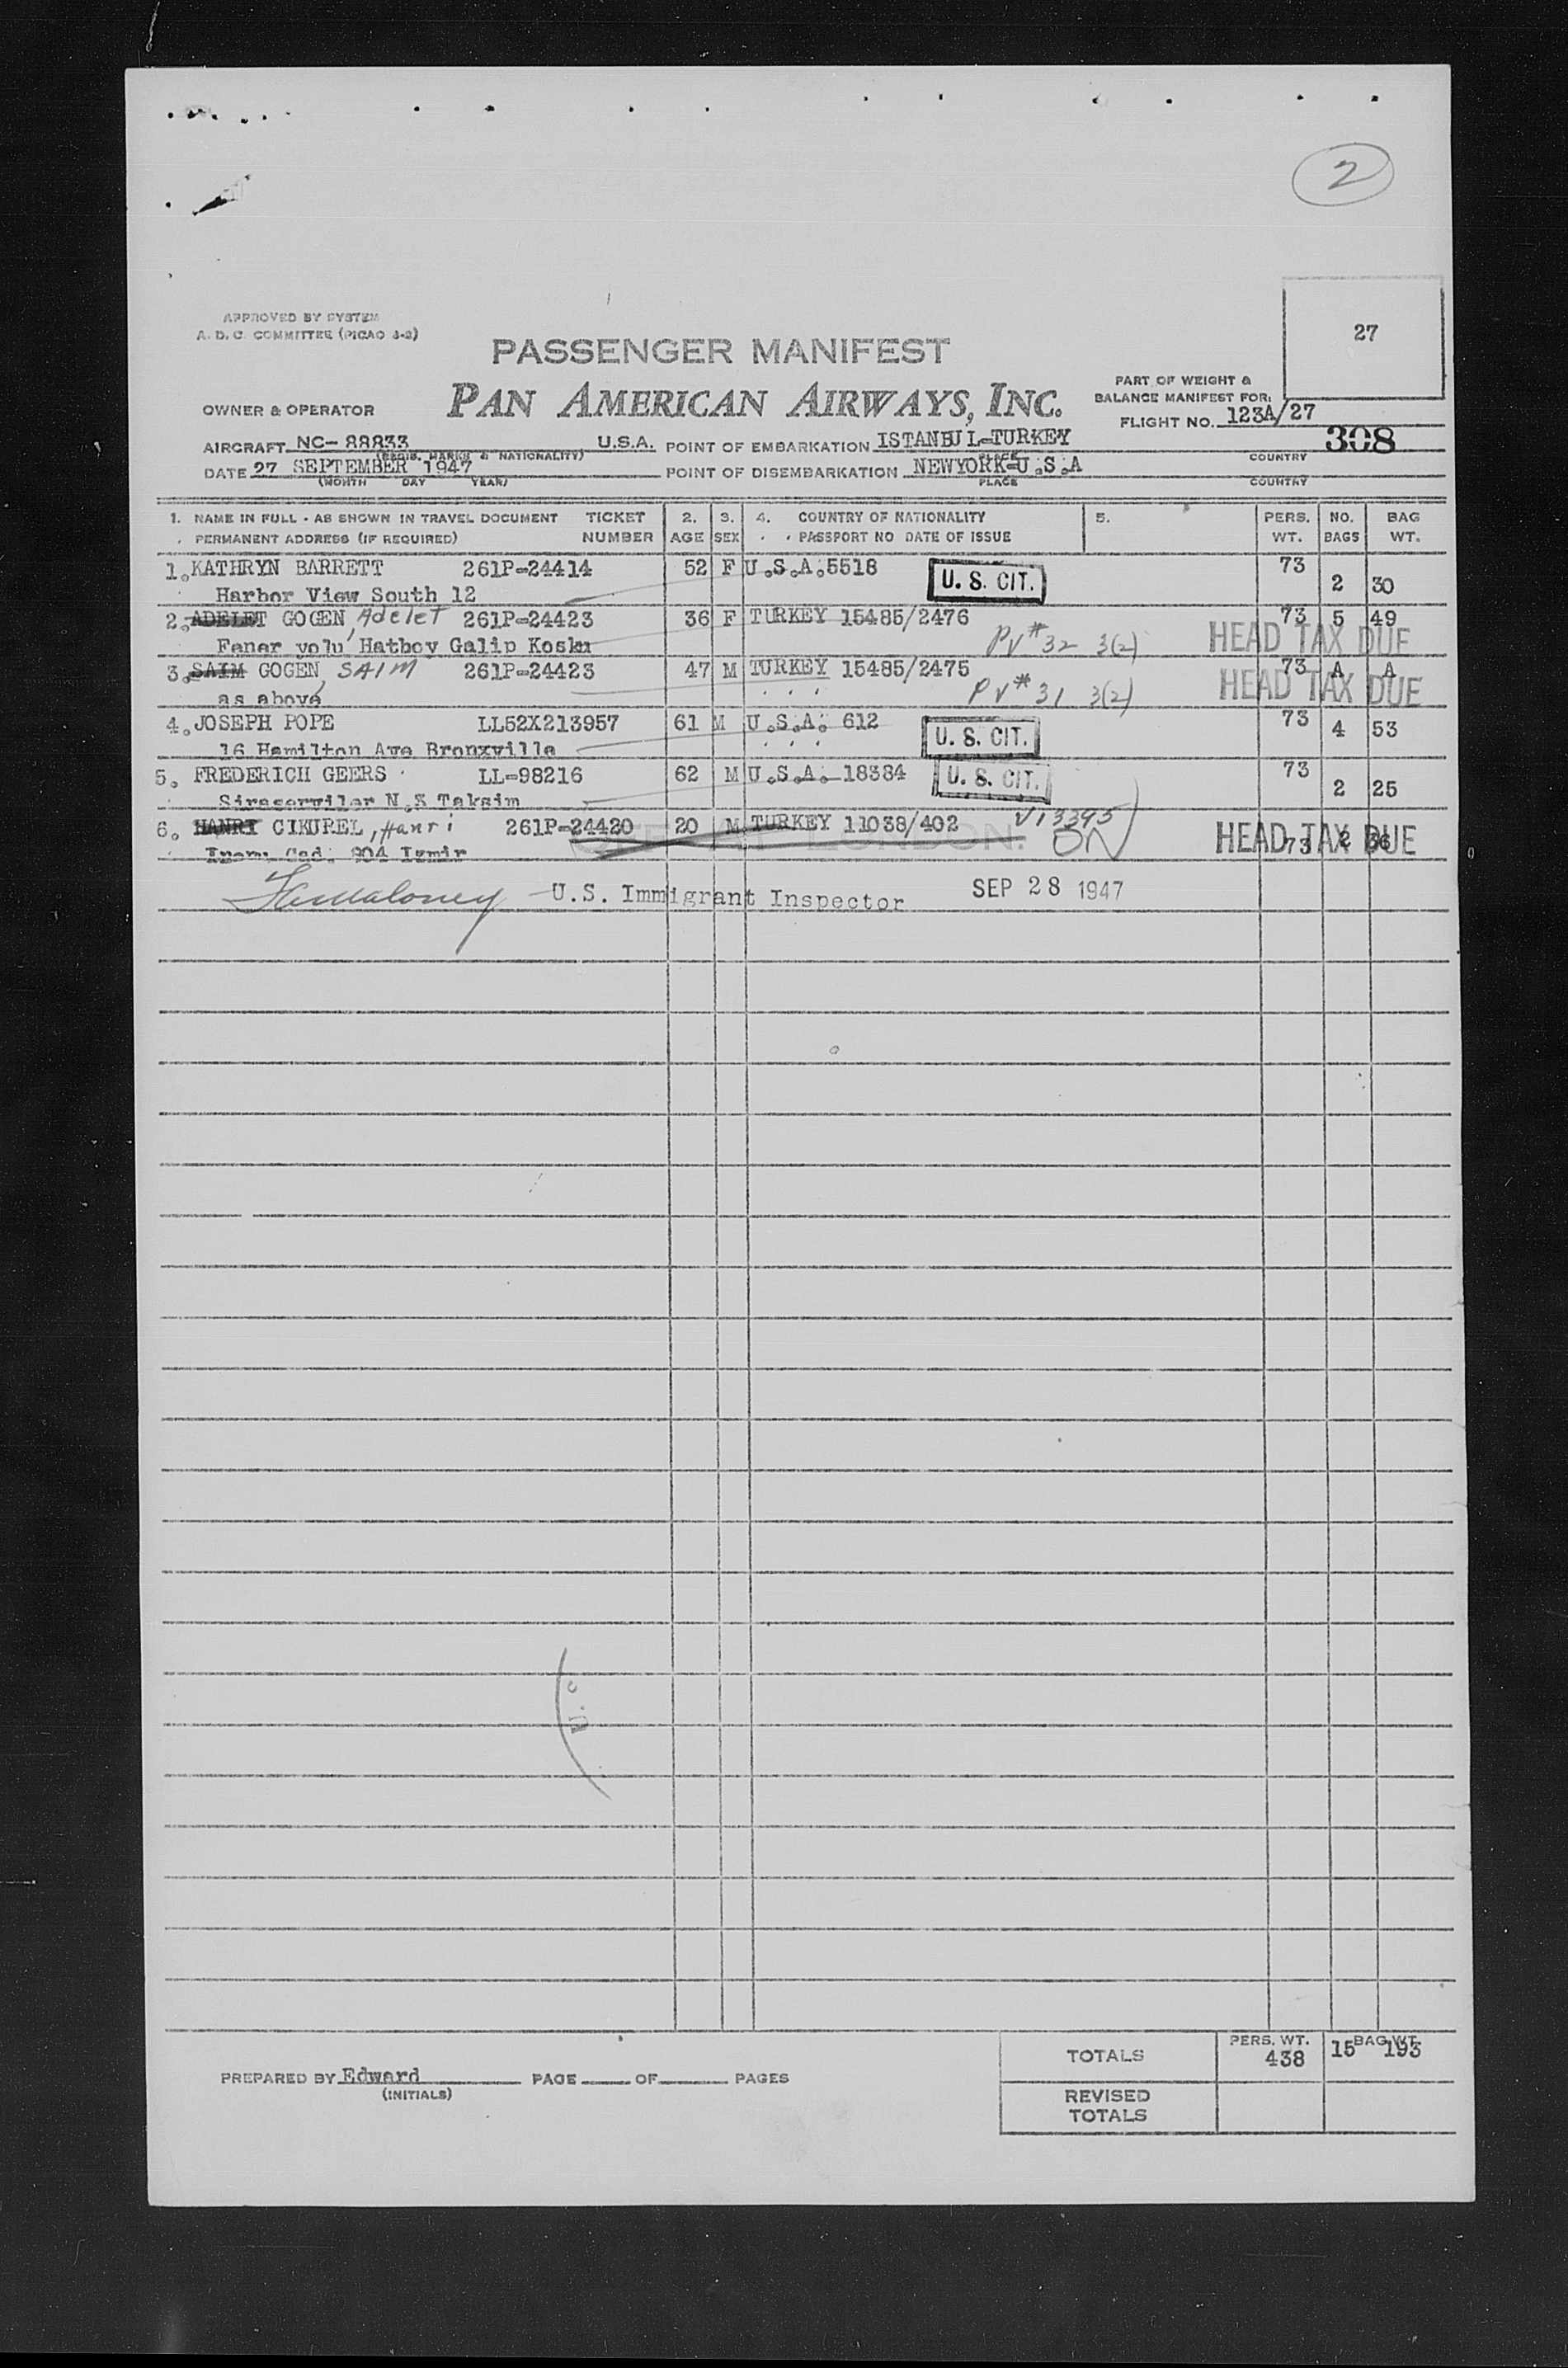 2
APPROVED BY SYSTEM
A. D. C. COMMITTEE (PICAO 3-2)
27
PASSENGER MANIFEST
PAN AMERICAN AIRWAYS, INC.
OWNER & OPERATOR
PART OF WEIGHT &
BALANCE MANIFEST FOR:
FLIGHT NO. 123A/27
308
AIRCRAFT NC-88833 U.S.A. POINT OF EMBARKATION ISTANBUL-TURKEY
(REGIS. MARKS & NATIONALITY) PLACE COUNTRY
DATE 27 SEPTEMBER 1947 POINT OF DISEMBARKATION NEWYORK-U.S.A
(MONTH DAY YEAR) PLACE COUNTRY
1. NAME IN FULL - AS SHOWN IN TRAVEL DOCUMENT TICKET 2. 3. 4. COUNTRY OF NATIONALITY 5. PERS. NO. BAG
PERMANENT ADDRESS (IF REQUIRED) NUMBER AGE SEX PASSPORT NO DATE OF ISSUE WT. BAGS WT.
1. KATHRYN BARRETT 261P-24414 52 F U.S.A.5518 U. S. CIT. 73 2 30
Harbor View South 12
2. ADELET GOGEN, Adelet 261P-24423 36 F TURKEY 15485/2476 73 5 49
Fener yolu Hatboy Galip Kosku PV#32 3(2) HEAD TAX DUE
3. SAIM GOGEN, SAIM 261P-24423 47 M TURKEY 15485/2475 73 A A
as above PV#31 3(2) HEAD TAX DUE
4. JOSEPH POPE LL52X213957 61 M U.S.A. 612 U. S. CIT. 73 4 53
16 Hamilton Ave Bronxville
5. FREDERICH GEERS LL-98216 62 M U.S.A. 18384 U. S. CIT. 73 2 25
Siraserviler N.3 Taksim
6. HANRI CIKUREL, Hanri 261P-24420 20 M TURKEY 11038/402 V13395 ON HEAD TAX DUE 73 2 36
LONDON.
Cad. 90A Izmir
U.S. Immigrant Inspector SEP 28 1947
TOTALS PERS. WT. 438 15 BAG WT. 193
PREPARED BY Edward PAGE OF PAGES
(INITIALS)
REVISED
TOTALS